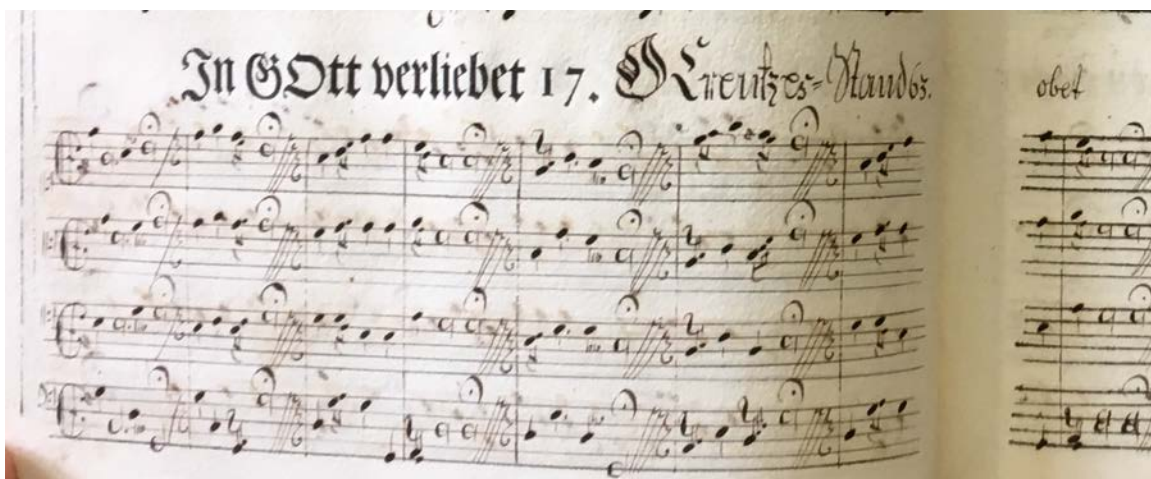 In GOtt verliebet 17. O Kreutzes-Stand 63.
obet